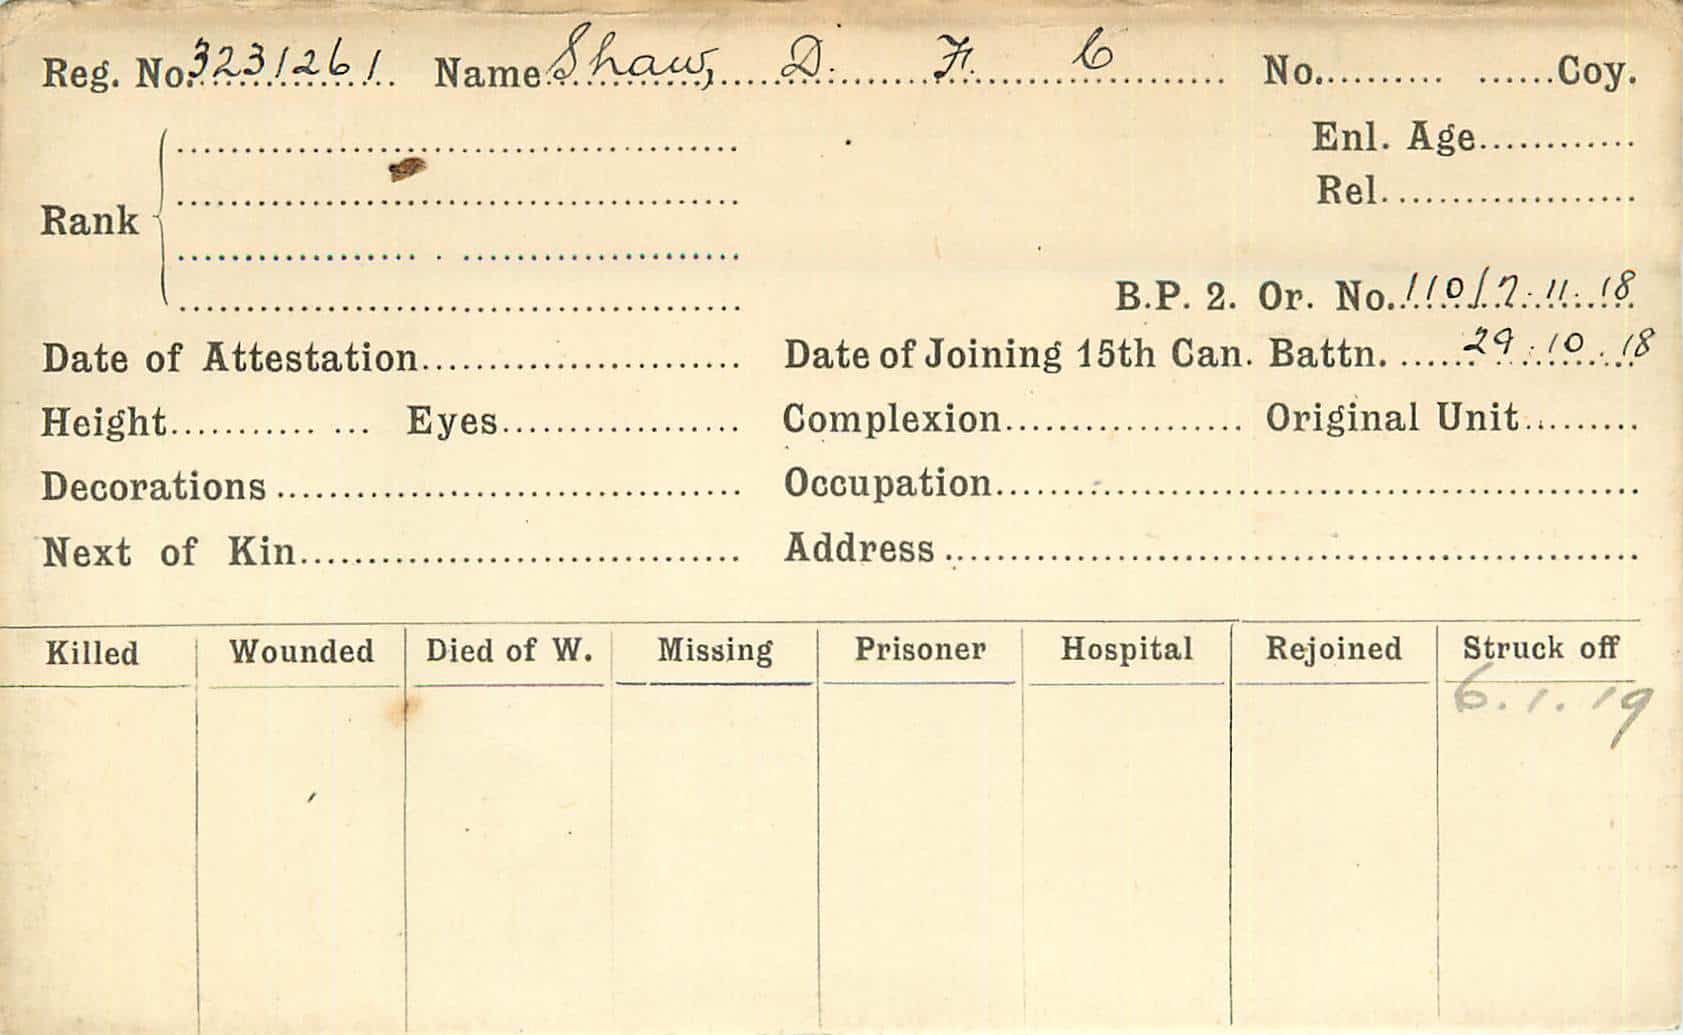 Reg. No. 3231261 Name Shaw, D. F. C No. Coy.
Enl. Age
Rel.
Rank
B.P. 2. Or. No. 110/7.11.18
Date of Attestation Date of Joining 15th Can. Battn. 29.10.18
Height Eyes Complexion Original Unit
Decorations Occupation
Next of Kin Address
Killed Wounded Died of W. Missing Prisoner Hospital Rejoined Struck off
6.1.19